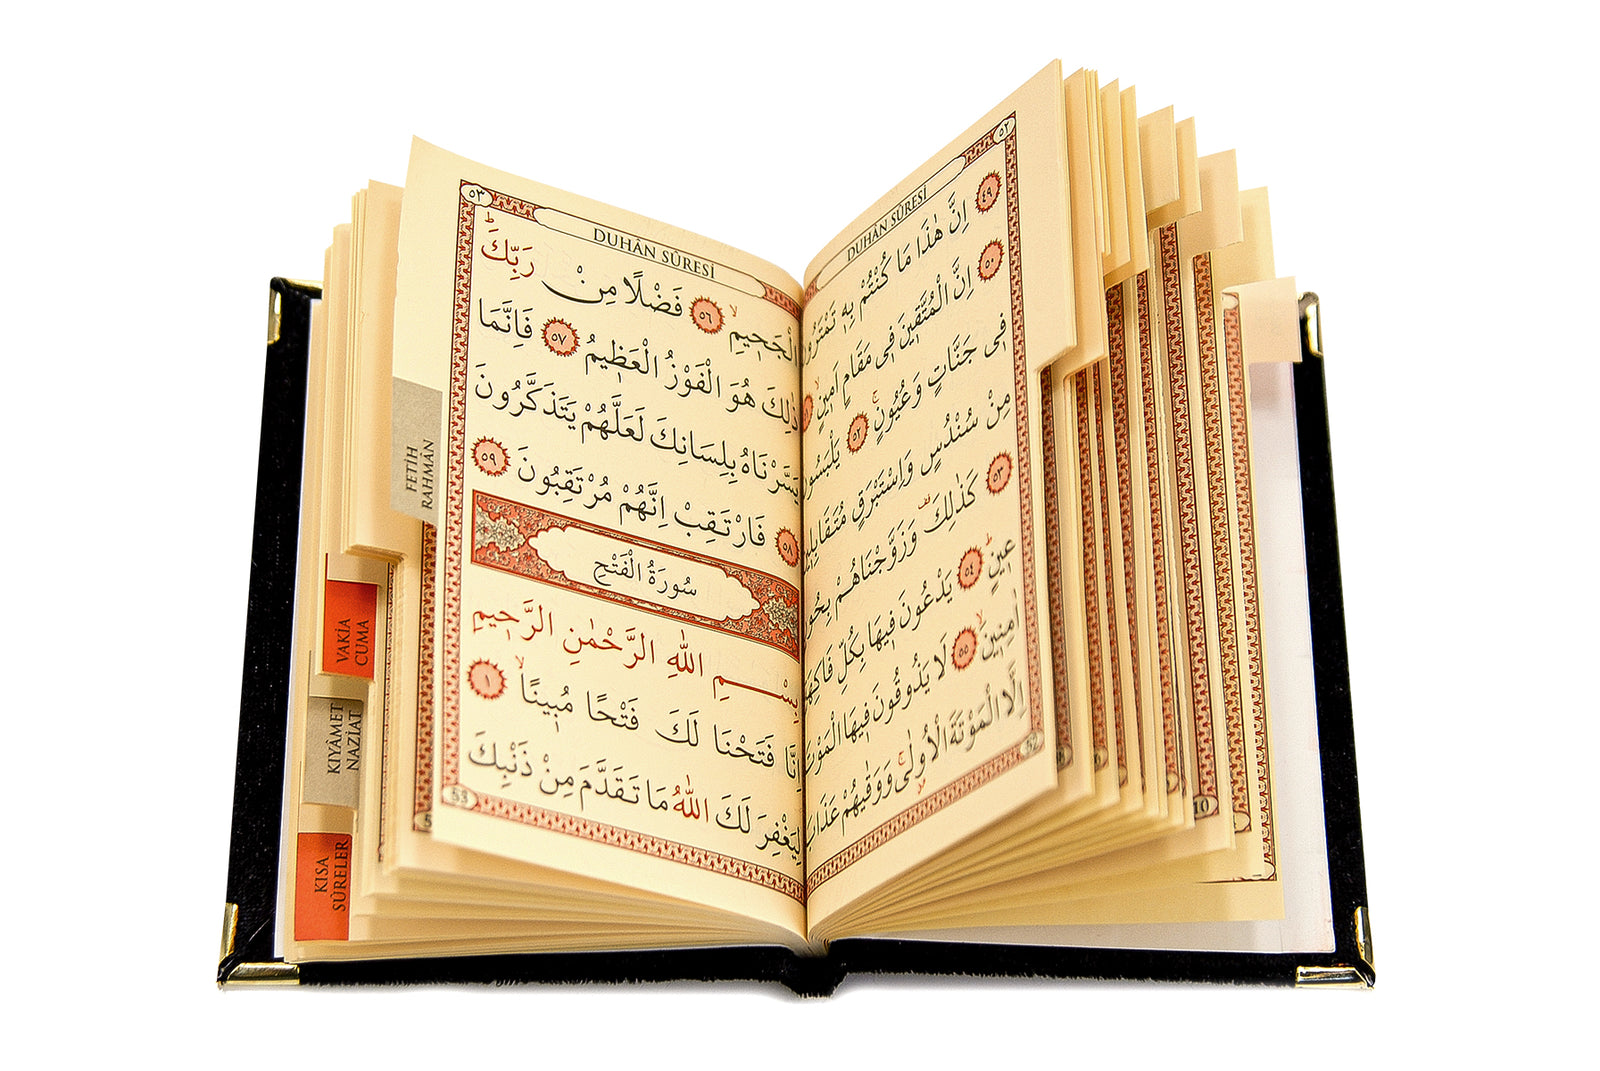 ٥٢
DUHÂN SÛRESİ
٤٩ اِنَّ هٰذَا مَا كُنْتُمْ بِهٖ
٥٠ اِنَّ الْمُتَّقٖينَ فٖى مَقَامٍ اَمٖينٍۙ
فٖى جَنَّاتٍ وَعُيُونٍۚ ٥٢
مِنْ سُنْدُسٍ وَاِسْتَبْرَقٍ
٥٣ كَذٰلِكَࣞ وَزَوَّجْنَاهُمْ
عٖينٍؕ ٥٤ يَدْعُونَ فٖيهَا بِكُلِّ
اٰمِنٖينَۙ ٥٥ لَا يَذُوقُونَ فٖيهَا
اِلَّا الْمَوْتَةَ الْاُولٰىۚ وَوَقٰيهُمْ عَذَابَ
52
٥٣
DUHÂN SÛRESİ
الْجَحٖيمِۙ ٥٦ فَضْلًا مِنْ رَبِّكَؕ
ذٰلِكَ هُوَ الْفَوْزُ الْعَظٖيمُ ٥٧ فَاِنَّمَا
يَسَّرْنَاهُ بِلِسَانِكَ لَعَلَّهُمْ يَتَذَكَّرُونَ
٥٨ فَارْتَقِبْ اِنَّهُمْ مُرْتَقِبُونَ ٥٩
سُورَةُ الْفَتْحِ
بِسْمِ اللّٰهِ الرَّحْمٰنِ الرَّحٖيمِ
اِنَّا فَتَحْنَا لَكَ فَتْحًا مُبٖينًاۙ ١
لِيَغْفِرَ لَكَ اللّٰهُ مَا تَقَدَّمَ مِنْ ذَنْبِكَ
53
FETİH
RAHMÂN
VAKİA
CUMA
KIYÂMET
NAZİAT
KISA
SÛRELER
10